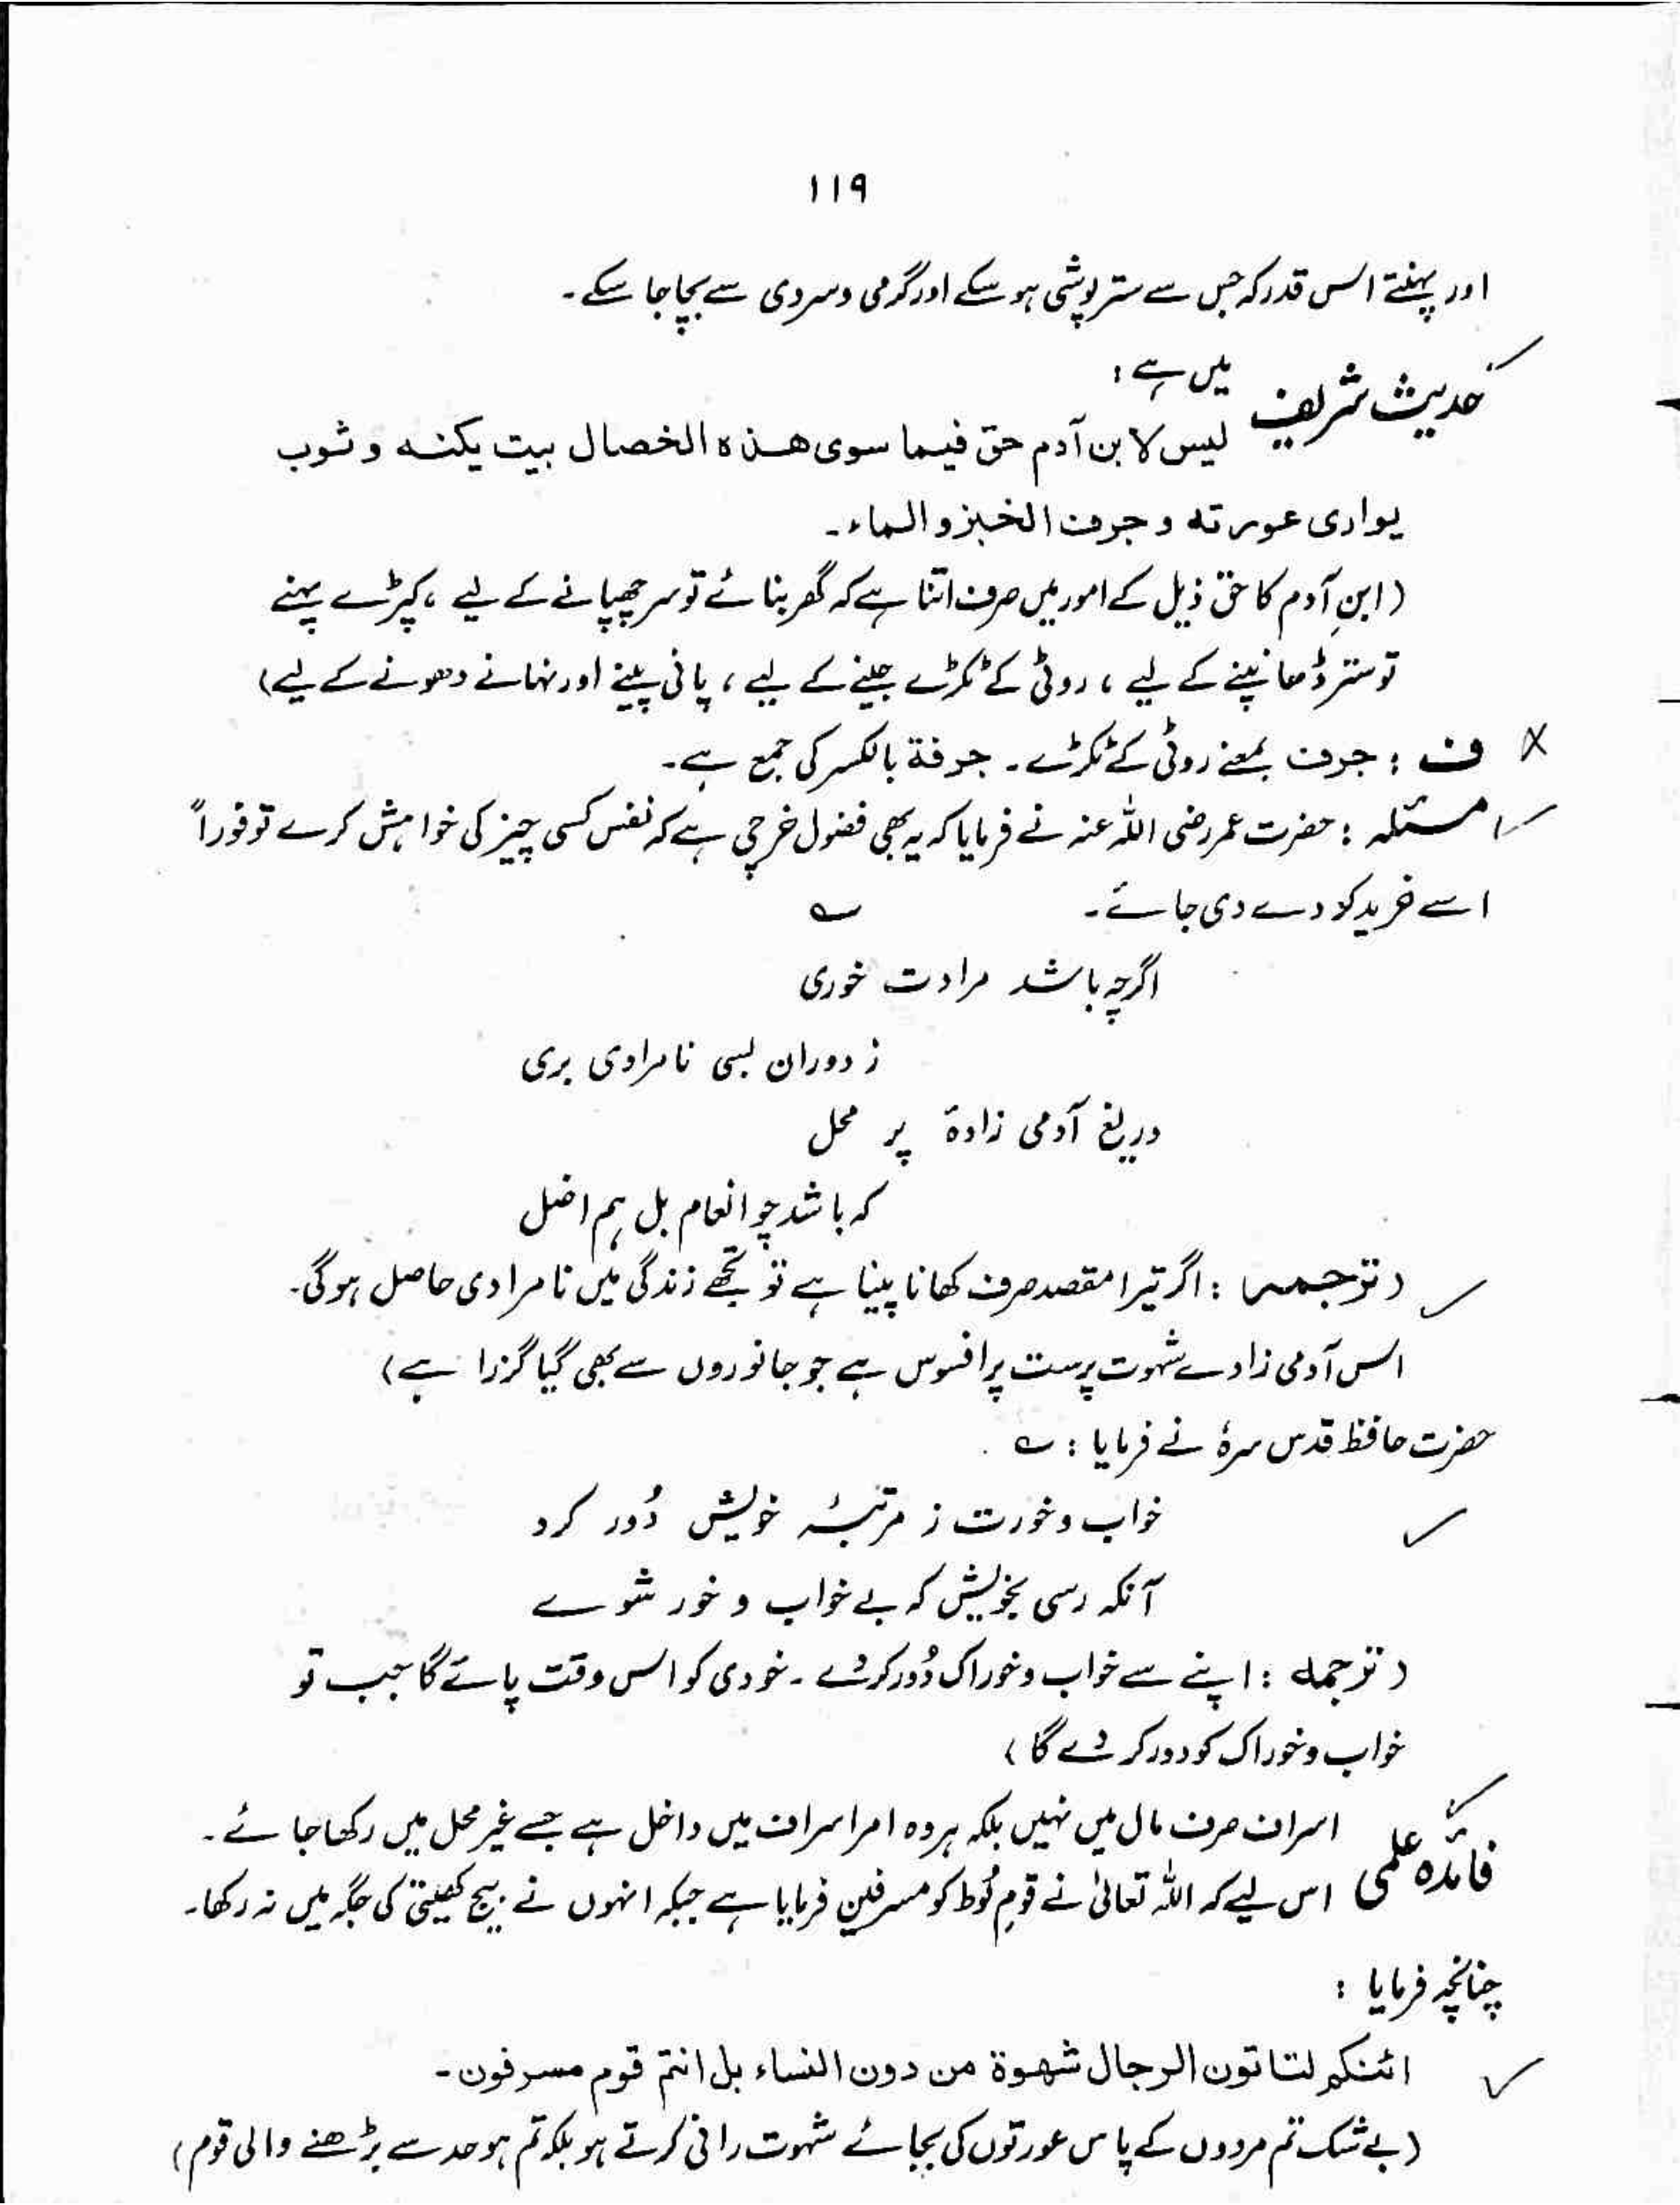 ۱۱۹
اور پہنتے اس قدر کہ جس سے ستر پوشی ہو سکے اور گرمی و سردی سے بچا جا سکے۔
حدیث شریف میں ہے :
لیس لابن آدم حق فیما سوی ھذہ الخصال بیت یکنہ و ثوب
یواری عورتہ و جرف الخبز و الماء۔
(ابنِ آدم کا حق ذیل کے امور میں صرف اتنا ہے کہ گھر بنائے تو سر چھپانے کے لیے ، کپڑے پہنے
تو ستر ڈھانپنے کے لیے ، روٹی کے ٹکڑے جینے کے لیے ، پانی پینے اور نہانے دھونے کے لیے)
ف : جرف بمعنے روٹی کے ٹکڑے۔ جرفۃ بالکسر کی جمع ہے۔
مسئلہ : حضرت عمر رضی اللہ عنہ نے فرمایا کہ یہ بھی فضول خرچی ہے کہ نفس کسی چیز کی خواہش کرے تو فوراً
اسے خرید کر دے دی جائے۔ ؎
اگرچہ باشد مرادت خوری
ز دوران بسی نامرادی بری
دریغ آدمی زادۂ پر محل
کہ باشد چو انعام بل ہم اضل
(ترجمہ : اگر تیرا مقصد صرف کھانا پینا ہے تو تجھے زندگی میں نامرادی حاصل ہوگی۔
اس آدمی زادے شہوت پرست پر افسوس ہے جو جانوروں سے بھی گیا گزرا ہے)
حضرت حافظ قدس سرۂ نے فرمایا : ؎
خواب و خورت ز مرتبۂ خویش دُور کرد
آنکہ رسی بخویش کہ بے خواب و خور شوے
(ترجمہ : اپنے سے خواب و خوراک دُور کر دے ۔ خودی کو اس وقت پائے گا جب تو
خواب و خوراک کو دور کر دے گا)
فائدہ علمی اسراف صرف مال میں نہیں بلکہ ہر وہ امر اسراف میں داخل ہے جسے غیر محل میں رکھا جائے۔
اس لیے کہ اللہ تعالیٰ نے قومِ لُوط کو مسرفین فرمایا ہے جبکہ انہوں نے بیج کھیتی کی جگہ میں نہ رکھا۔
چنانچہ فرمایا :
ائنکم لتاتون الرجال شھوۃ من دون النساء بل انتم قوم مسرفون۔
(بے شک تم مردوں کے پاس عورتوں کی بجائے شہوت رانی کرتے ہو بلکہ تم ہو حد سے بڑھنے والی قوم)